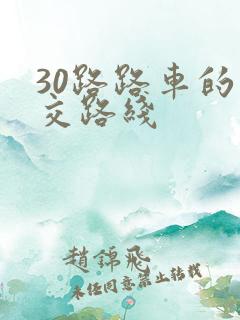 30路路車的
交路綫
趙錦飛
未任同意禁止转载